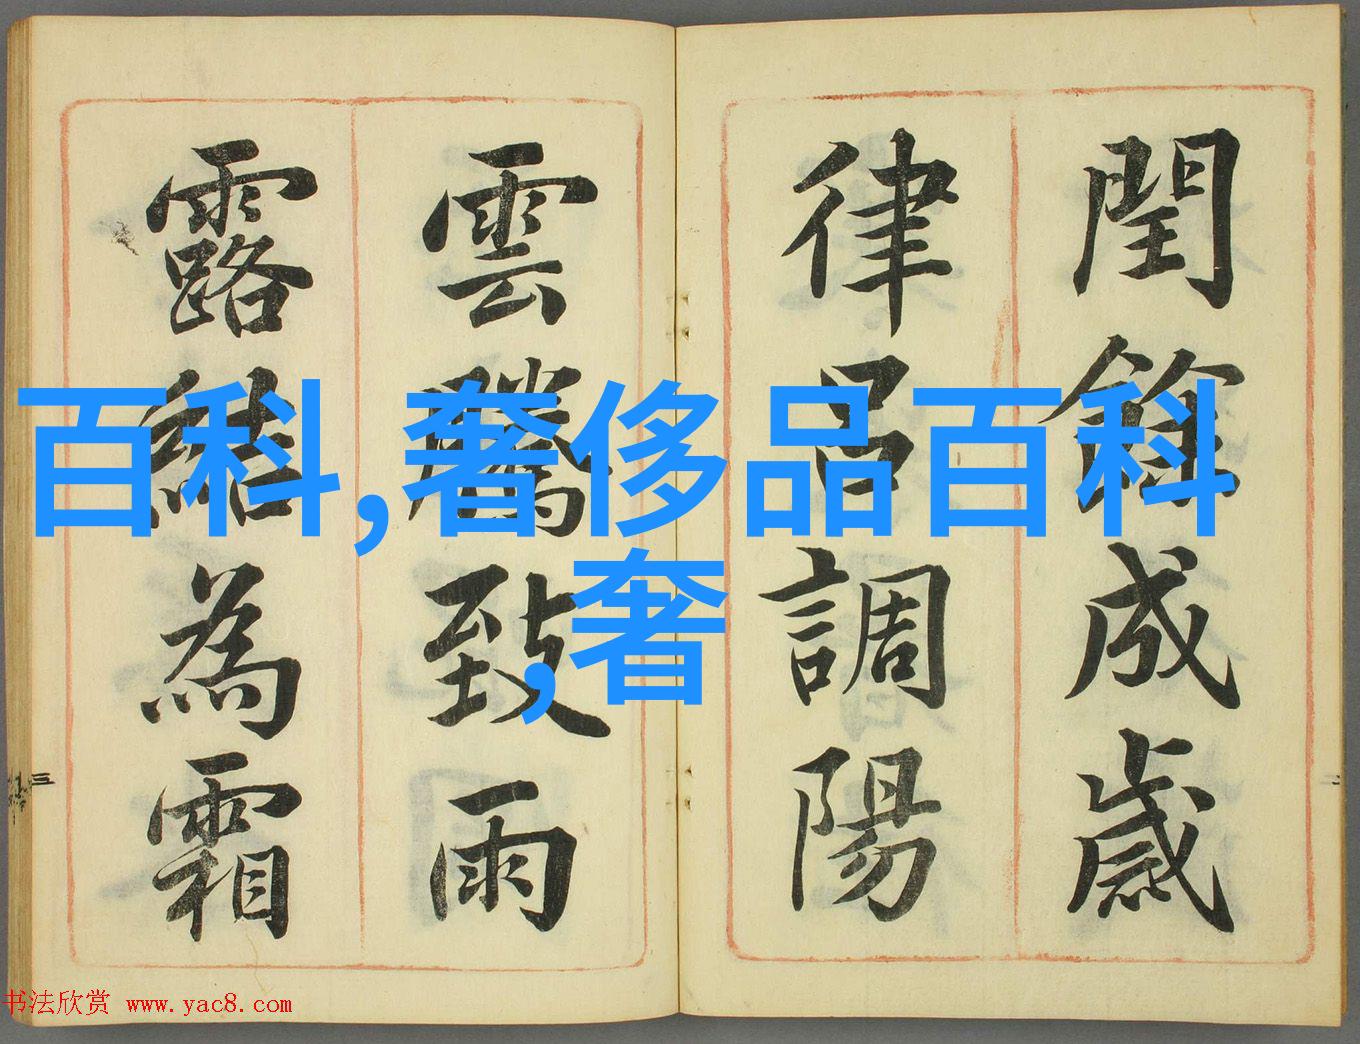 閏餘成歲
律呂調陽
雲騰致雨
露結為霜
百科,奢侈品百科
,奢
三
书法欣赏 www.yac8.com